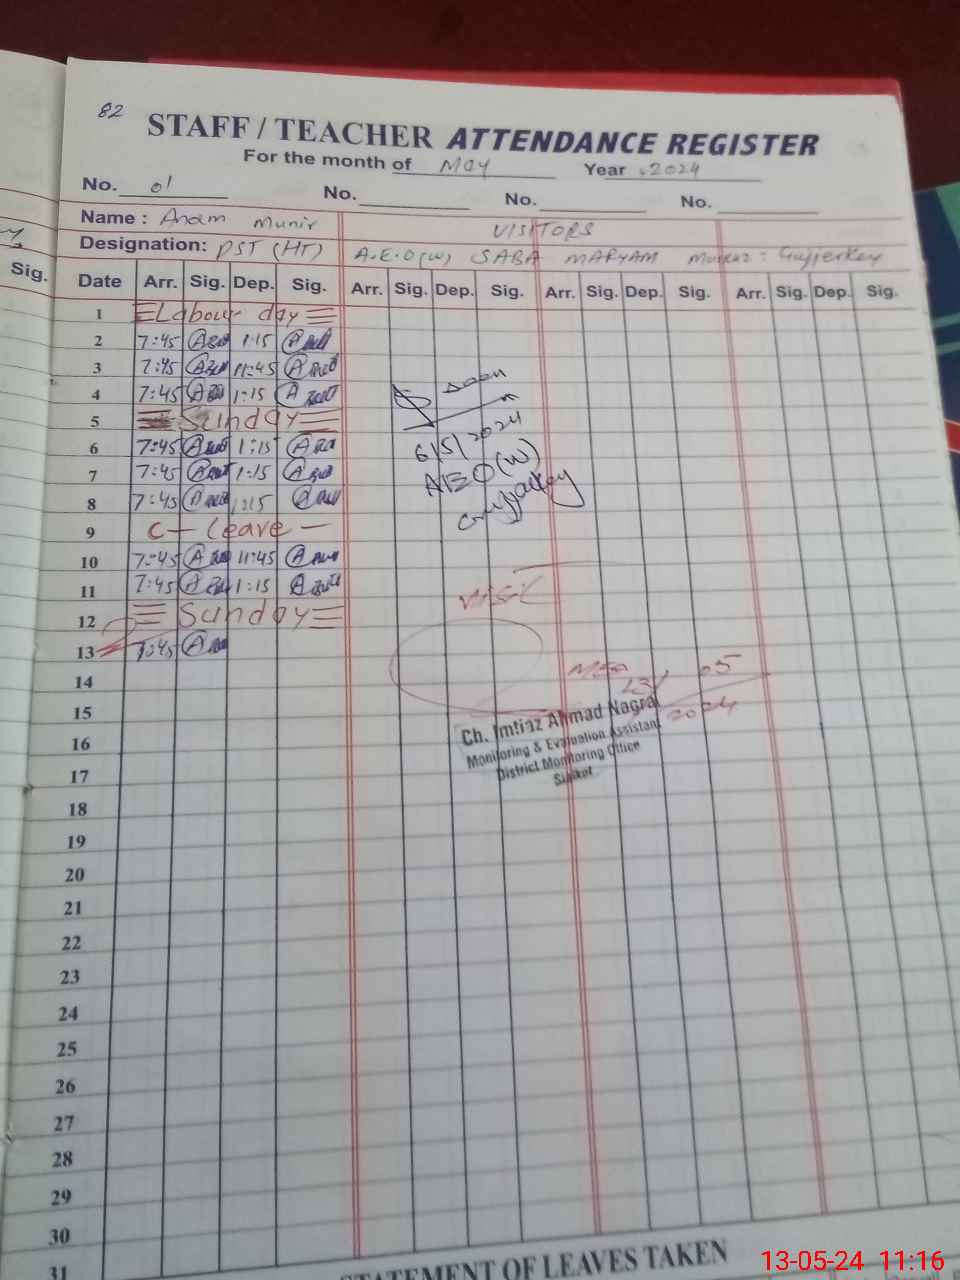 82
STAFF / TEACHER ATTENDANCE REGISTER
For the month of May Year 2024
No. 01 No. No. No.
Name : Anam Munir VISITORS
Designation: PST (HT) A.E.O(W) SABA MARYAM Markaz : Gujjerkey
Sig. Date Arr. Sig. Dep. Sig. Arr. Sig. Dep. Sig. Arr. Sig. Dep. Sig. Arr. Sig. Dep. Sig.
1 Labour day
2 7:45 1:15
3 7:45 11:45
4 7:45 1:15
5 Sunday
6 7:45 1:15
6/5/2024
7 7:45 1:15
AEO(W)
8 7:45 1:15
9 C - Leave -
10 7:45 11:45
11 7:45 1:15
Visit
12 Sunday
13 7:45
14
MEA 13/05
2024
15
Ch. Imtiaz Ahmad Nagra
Monitoring & Evaluation Assistant
District Monitoring Office
Sialkot
16
17
18
19
20
21
22
23
24
25
26
27
28
29
30
31
STATEMENT OF LEAVES TAKEN
13-05-24 11:16